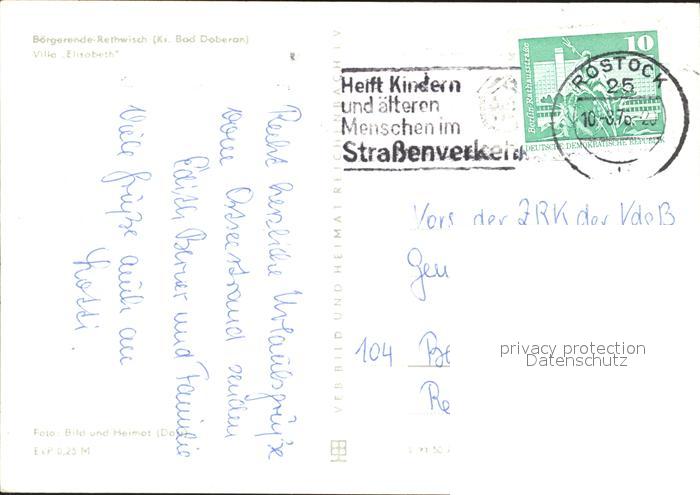 Börgerende-Rethwisch (Kr. Bad Doberan)
Villa „Elisabeth"
Recht herzliche Urlaubsgrüße
vom Ostseestrand senden
Edith Berner und Familie
Viele Grüße auch an
Lotti
Foto: Bild und Heimat
EVP 0,25 M
VEB BILD UND HEIMAT REICHENBACH I. V
Helft Kindern
und älteren
Menschen im
Straßenverkehr
10
Berlin-Rathausstraße
DEUTSCHE DEMOKRATISCHE REPUBLIK
ROSTOCK
25
Vors der ZRK der VdgB
Gen
104 Be
Re
privacy protection
Datenschutz